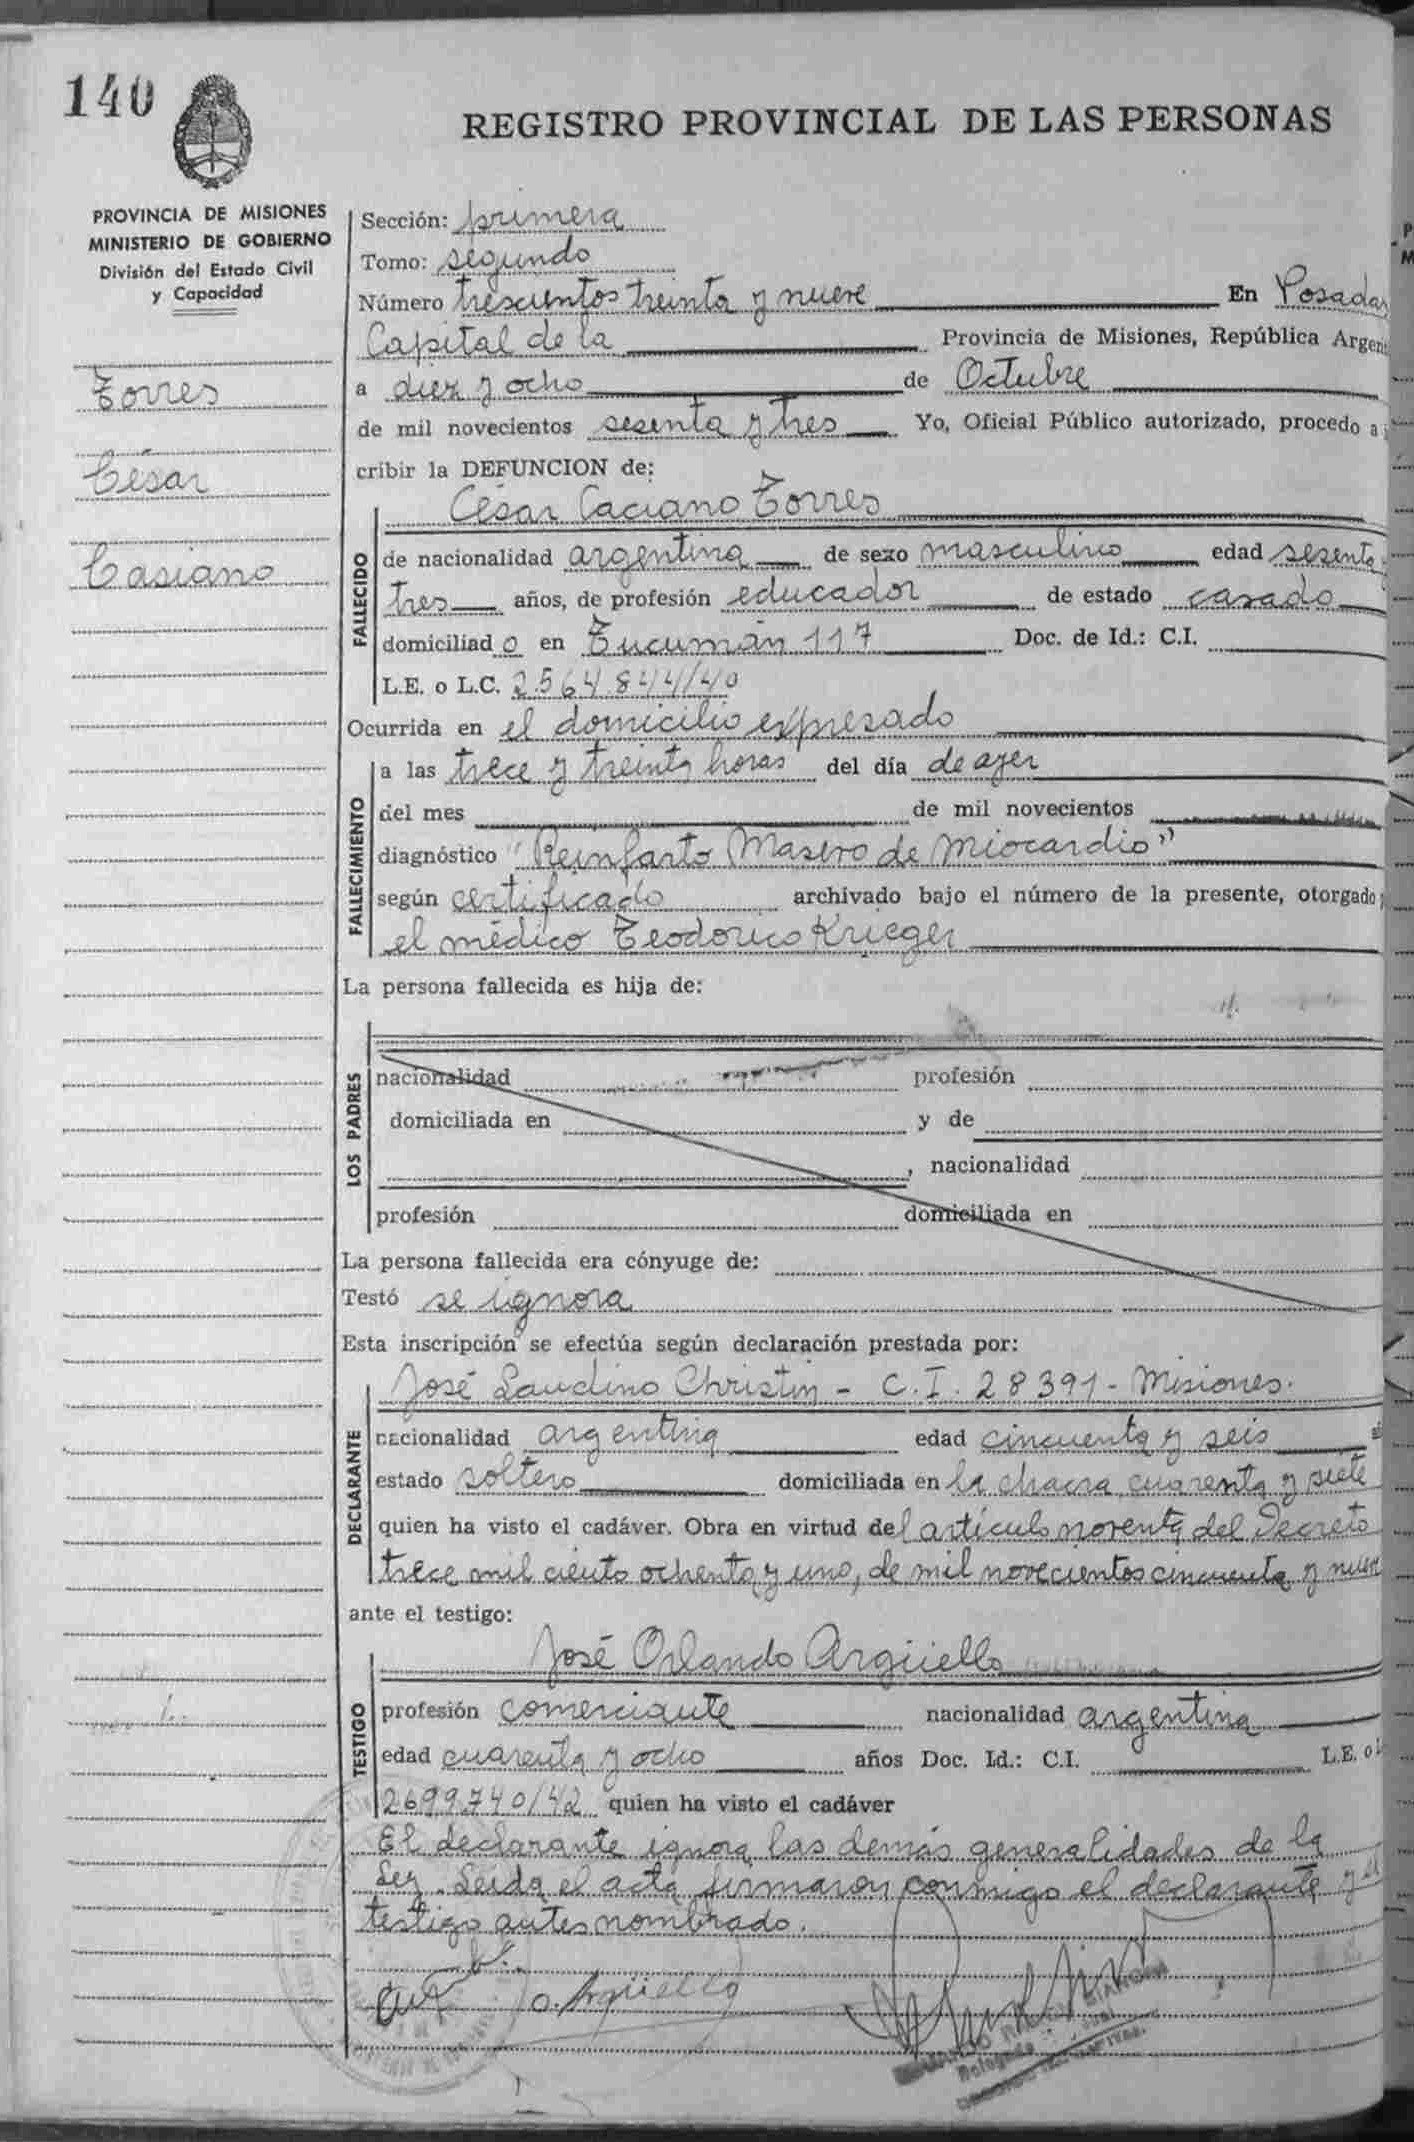 140
REGISTRO PROVINCIAL DE LAS PERSONAS
PROVINCIA DE MISIONES
MINISTERIO DE GOBIERNO
División del Estado Civil
y Capacidad
Torres
César
Casiano
Sección: primera
Tomo: segundo
Número trescientos treinta y nueve En Posadas
Capital de la Provincia de Misiones, República Argen
a diez y ocho de Octubre
de mil novecientos sesenta y tres Yo, Oficial Público autorizado, procedo a
cribir la DEFUNCION de:
César Caciano Torres
FALLECIDO
de nacionalidad argentina de sexo masculino edad sesenta
tres años, de profesión educador de estado casado
domiciliado en Tucumán 117 Doc. de Id.: C.I.
L.E. o L.C. 2.564.844/40
Ocurrida en el domicilio expresado
FALLECIMIENTO
a las trece y treinta horas del día de ayer
del mes de mil novecientos
diagnóstico "Reinfarto Masivo de Miocardio"
según certificado archivado bajo el número de la presente, otorgado
el médico Teodorico Krieger
La persona fallecida es hija de:
LOS PADRES
nacionalidad profesión
domiciliada en y de
, nacionalidad
profesión domiciliada en
La persona fallecida era cónyuge de:
Testó se ignora
Esta inscripción se efectúa según declaración prestada por:
José Laudino Christin - C.I. 28391 - Misiones.
DECLARANTE
nacionalidad argentina edad cincuenta y seis
estado soltero domiciliada en la chacra cuarenta y siete
quien ha visto el cadáver. Obra en virtud del artículo noventa del Decreto
trece mil ciento ochenta y uno, de mil novecientos cincuenta y nueve
ante el testigo:
José Orlando Argüello
TESTIGO
profesión comerciante nacionalidad argentina
edad cuarenta y ocho años Doc. Id.: C.I. L.E. o
2699740/42 quien ha visto el cadáver
El declarante ignora las demás generalidades de la
Ley. Leida el acta firmaron conmigo el declarante y el
testigo antes nombrado.
O. Argüello